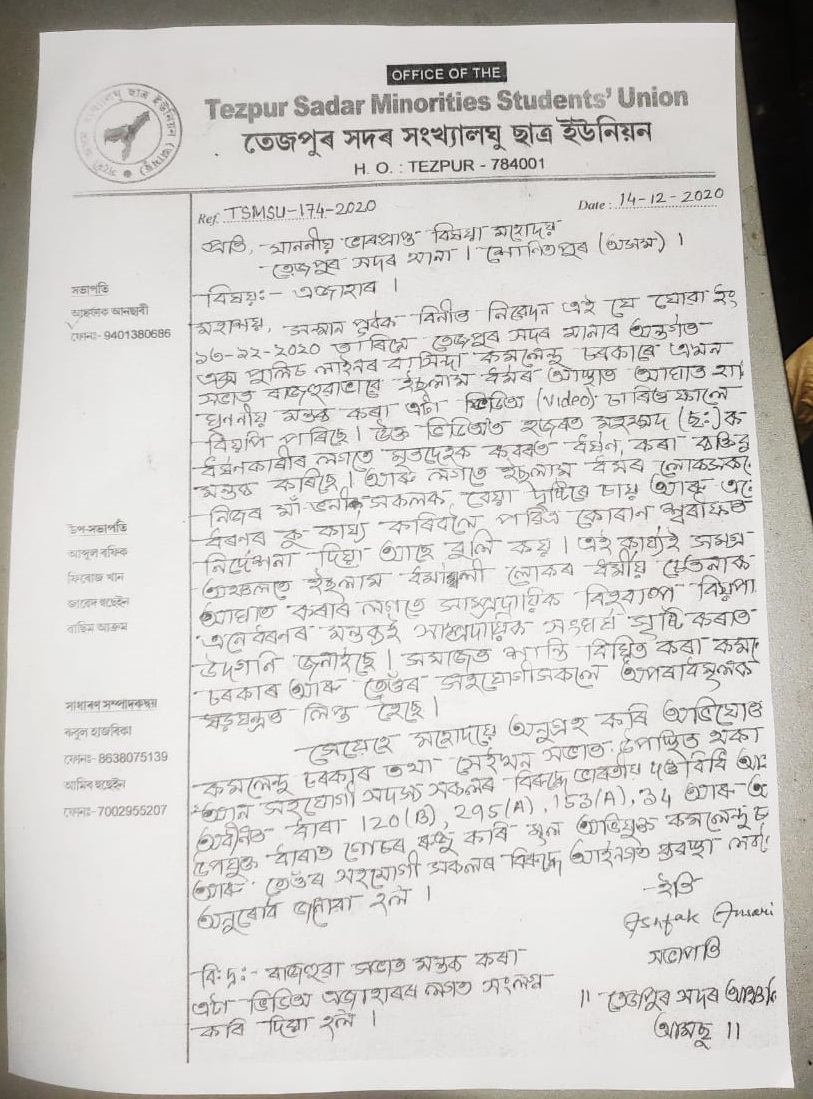 OFFICE OF THE
Tezpur Sadar Minorities Students' Union
তেজপুৰ সদৰ সংখ্যালঘু ছাত্ৰ ইউনিয়ন
H. O. : TEZPUR - 784001
Ref. TSMSU-174-2020
Date : 14-12-2020
প্ৰতি, মাননীয় ভাৰপ্ৰাপ্ত বিষয়া মহোদয়
তেজপুৰ সদৰ থানা । শোণিতপুৰ (অসম) ।
বিষয়:- এজাহাৰ ।
মহাশয়, সন্মান পূৰ্বক বিনীত নিবেদন এই যে যোৱা ইং
১৩-১২-২০২০ তাৰিখে তেজপুৰ সদৰ থানাৰ অন্তৰ্গত
এক্স পুলিচ লাইনৰ বাসিন্দা কমলেন্দু চৰকাৰে এখন
সভাত ৰাজহুৱাভাৱে ইছলাম ধৰ্মৰ আস্থাত আঘাত হা
ঘৃননীয় মন্তব্য কৰা এটা ভিডিঅ' (Video) চাৰিওফালে
বিয়পি পৰিছে । উক্ত ভিডিঅত হজৰত মহম্মদ (ছ:)ক
ধৰ্ষণকাৰীৰ লগতে মৃতদেহক কবৰত ধৰ্ষণ কৰা ব্যক্তি বু
মন্তব্য কৰিছে । আৰু লগতে ইছলাম ধৰ্মৰ লোকসকলে
নিজৰ মাঁ-ভনীক সকলক বেয়া দৃষ্টিৰে চায় আৰু এনে
ধৰণৰ কু কাৰ্য্য কৰিবলৈ পবিত্ৰ কোৰাণ শ্বৰীফত
নিৰ্দেশনা দিয়া আছে বুলি কয় । এই কাৰ্য্যই সমগ্ৰ
অঞ্চলতে ইছলাম ধৰ্মাৱলম্বী লোকৰ ধৰ্মীয় চেতনাক
আঘাত কৰাৰ লগতে সাম্প্ৰদায়িক বিষবাষ্প বিয়পা
এনে ধৰণৰ মন্তব্যই সাম্প্ৰদায়িক সংঘৰ্ষ সৃষ্টি কৰাত
উদগনি জনাইছে । সমাজত শান্তি বিঘ্নিত কৰা কমলে
চৰকাৰ আৰু তেওঁৰ সহযোগীসকলে অপৰাধমূলক
ষড়যন্ত্ৰত লিপ্ত হৈছে ।
সেয়েহে মহোদয়ে অনুগ্ৰহ কৰি অভিযোগ
কমলেন্দু চৰকাৰ তথা সেইখন সভাত উপস্থিত থকা
আন সহযোগী সদস্য সকলৰ বিৰুদ্ধে ভাৰতীয় দণ্ড বিধি আ
অধীনত ধাৰা 120(B), 295(A), 153(A), 34 আৰু অ
উপযুক্ত ধাৰাত গোচৰ ৰুজু কৰি মূল অভিযুক্ত কমলেন্দু চ
আৰু তেওঁৰ সহযোগী সকলৰ বিৰুদ্ধে আইনগত ব্যৱস্থা লব
অনুৰোধ জনোৱা হল ।
-ইতি
Ashfak Ansari
সভাপতি
|| তেজপুৰ সদৰ আঞ্চলি
আমছু ||
বি:দ্ৰ:- ৰাজহুৱা সভাত মন্তব্য কৰা
এটা ভিডিঅ এজাহাৰৰ লগত সংলগ্ন
কৰি দিয়া হল ।
সভাপতি
আছফাক আনছাৰী
ফোনঃ- 9401380686
উপ-সভাপতি
আব্দুল ৰফিক
ফিৰোজ খান
জাবেদ হুছেইন
ৰাছিম আক্ৰম
সাধাৰণ সম্পাদকদ্বয়
বাবুল হাজৰিকা
ফোনঃ- 8638075139
আমিৰ হুছেইন
ফোনঃ-7002955207